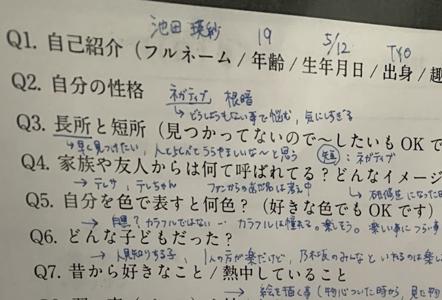 池田 瑛紗 19 5/12 TYO
Q1. 自己紹介（フルネーム / 年齢 / 生年月日 / 出身 / 趣
Q2. 自分の性格 ネガティブ 根暗
→どうしようもない事で悩む, 気にしすぎる
Q3. 長所と短所（見つかってないので〜したいもOKで
→早く見つけたい, 人とくらべてうらやましいな〜と思う 短:ネガティブ
Q4. 家族や友人からは何て呼ばれてる？どんなイメージ
→テレサ, テレちゃん ファンからのあだ名は考え中 →研修生になった日
Q5. 自分を色で表すと何色？（好きな色でもOKです）
→ 自黒？カラフルではない… カラフルに憧れる。楽しそう。 楽しい事につらい事
Q6. どんな子どもだった？
→人見知りする子, 1人の方が楽だけど, 乃木坂のみんなといれるのは楽し
Q7. 昔から好きなこと / 熱中していること
→ 絵を描く事（物心ついた時から, 見た物